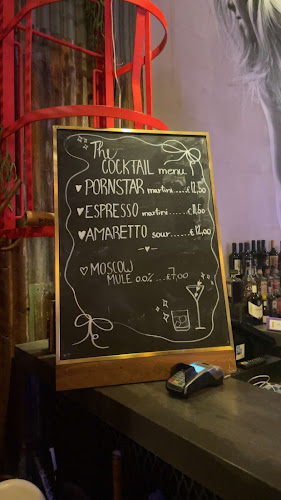 The
COCKTAIL menu
♥ PORNSTAR martini.....€12,50
♥ ESPRESSO martini.....€11,50
♥ AMARETTO sour.....€12,00
♡ MOSCOW
MULE 0.0%...€7,00